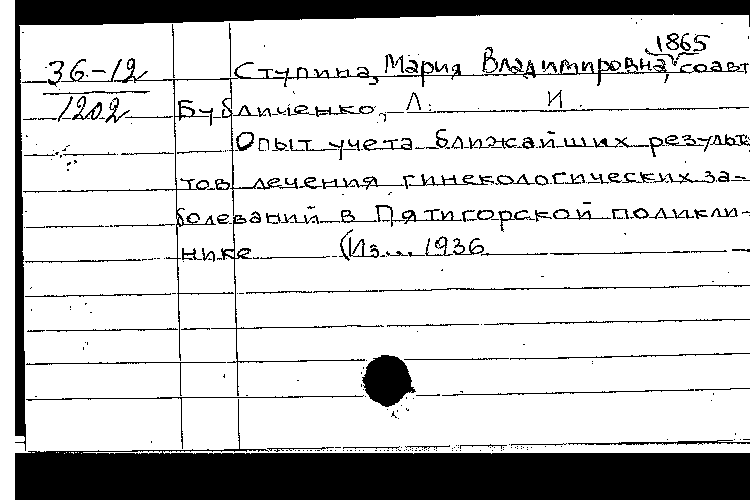 1865
36-12 Ступина, Мария Владимировна, соавт
1202 Бубличенко, Л. И.
Опыт учета ближайших результа
тов лечения гинекологических за-
болеваний в Пятигорской поликли-
нике (Из... 1936